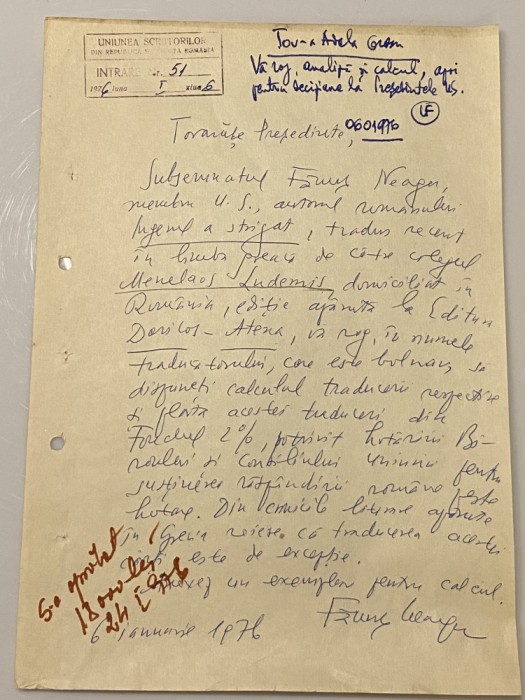 UNIUNEA SCRIITORILOR
DIN REPUBLICA SOCIALISTĂ ROMÂNIA
INTRARE Nr. 51
1976 luna I ziua 6
Tov-a Adela
Vă rog, analiză și calcul, apoi
pentru decizione la Președintele US.
06 01 1976
Tovarășe Președinte,
Subsemnatul Fănuș Neagu,
membru U.S., autorul romanului
Îngerul a strigat, tradus recent
în limba greacă de către colegul
Menelaos Ludemis, domiciliat în
România, ediție apărută la Editura
Doricos - Atena, vă rog, în numele
traducătorului, care este bolnav, să
dispuneți calculul traducerii respective
și plata acestei traduceri din
Fondul 2%, potrivit hotărîrii Bi-
roului și Consiliului Uniunii pentru
susținerea răspîndirii române peste
hotare. Din cronicile literare apărute
în Grecia reiese că traducerea acestei
cărți este de excepție.
Anexez un exemplar pentru calcul.
6 ianuarie 1976 Fănuș Neagu
S-a aprobat
18000 lei
24 I 976